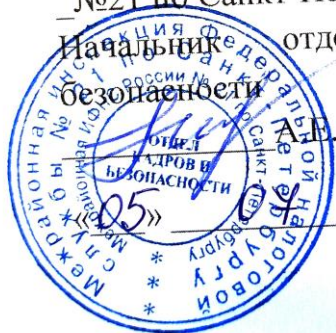 №21 по Санкт-Пе
Начальник отде
безопасности
А.Е.
«05» 04
Межрайонная инспекция Федеральной налоговой
службы № 21 по Санкт-Петербургу
России №
Санкт-Петербургу
ОТДЕЛ
КАДРОВ И
БЕЗОПАСНОСТИ